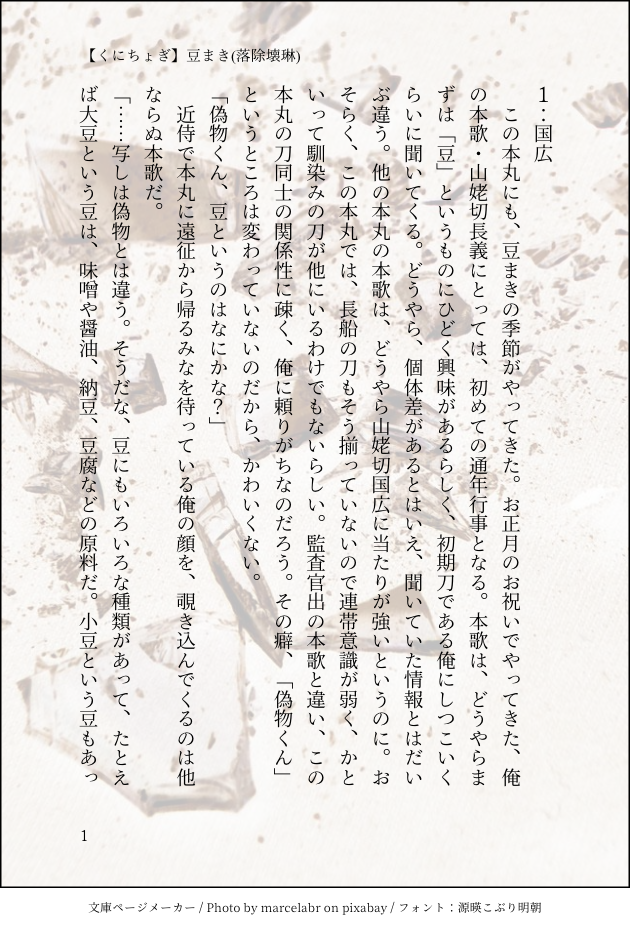 【くにちょぎ】豆まき(落除壊琳)
1：国広
　この本丸にも、豆まきの季節がやってきた。お正月のお祝いでやってきた、俺
の本歌・山姥切長義にとっては、初めての通年行事となる。本歌は、どうやらま
ずは「豆」というものにひどく興味があるらしく、初期刀である俺にしつこいく
らいに聞いてくる。どうやら、個体差があるとはいえ、聞いていた情報とはだい
ぶ違う。他の本丸の本歌は、どうやら山姥切国広に当たりが強いというのに。お
そらく、この本丸では、長船の刀もそう揃っていないので連帯意識が弱く、かと
いって馴染みの刀が他にいるわけでもないらしい。監査官出の本歌と違い、この
本丸の刀同士の関係性に疎く、俺に頼りがちなのだろう。その癖、「偽物くん」
というところは変わっていないのだから、かわいくない。
「偽物くん、豆というのはなにかな？」
　近侍で本丸に遠征から帰るみなを待っている俺の顔を、覗き込んでくるのは他
ならぬ本歌だ。
「……写しは偽物とは違う。そうだな、豆にもいろいろな種類があって、たとえ
ば大豆という豆は、味噌や醤油、納豆、豆腐などの原料だ。小豆という豆もあっ
1
文庫ページメーカー / Photo by marcelabr on pixabay / フォント：源暎こぶり明朝